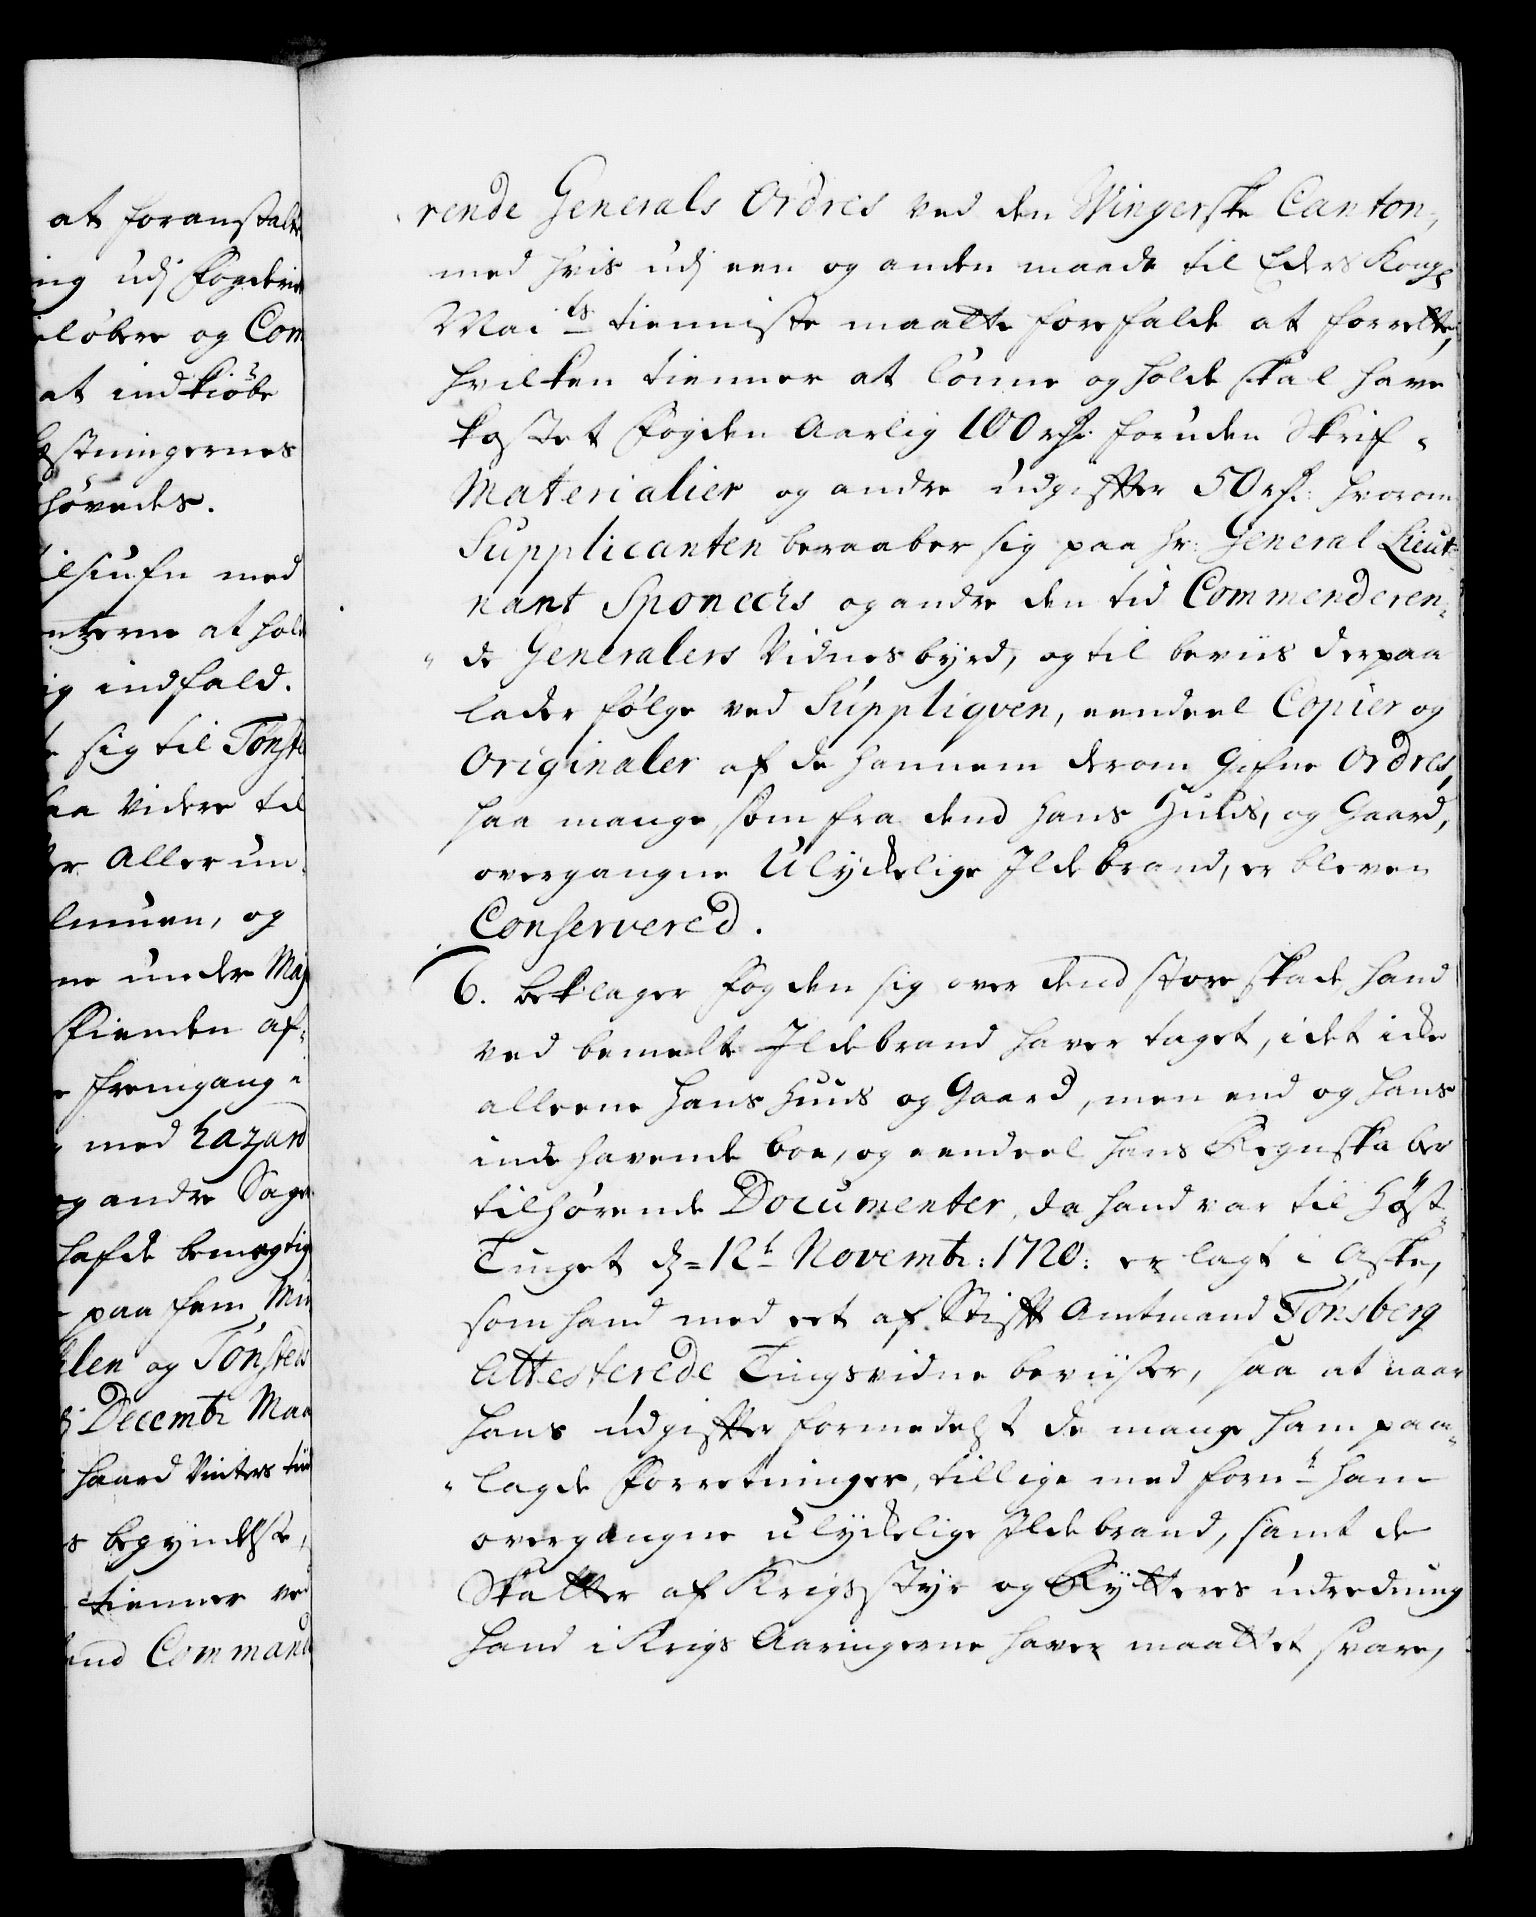 at foranstalte
ing udj Fogderie
eløbere og Com
at indkiøbe
æstningernes
høvedes.
tilsiufn med
ntzerne at hold
ig indfald.
sig til Tönste
aa videre til
er Aller un-
lmuen, og
ne under Maj
Fienden af-
fremgang i
med hazard
og andre Sage
hafde bemegtig
paa fem Mi
len og Tönsted
Decembr Maa
haard Vinters tiid
s begyndelse,
tienner ved
end Command
rende Generals Ordres ved den Wingerske Canton,
med hvis udj een og anden maade til Eders Kongl
Maits tienniste maatte forefalde at forrette,
hvilken tienner at lønne og holde skal have
kostet Fogden Aarlig 100 rdr: foruden Skrif-
Materialier og andre udgiffter 50 rdr: hvorom
Supplicanten beraaber sig paa Hr: General Lieut-
nant Sponecks og andre den tid Commenderen-
de Generalers Vidnesbyrd, og til beviis derpaa
lader følge ved Suppliqven, eendeel Copier og
Originaler af de hannem derom Gifne Ordres,
saa mange, som fra dend hans Huus, og Gaard,
overgangne Ulykkelige Ildebrand, er bleven
Conservered.
6. beklager Fogden sig over dend store skade hand
ved bemelte Ildebrand haver taget, i det icke
alleene hans Huus og Gaard, men end og hans
inde havende boe, og eendeel hans Regnskaber
tilhørende Documenter, da hand var til Høst-
Tinget d= 12t Novembr: 1720: er lagt i Aske,
som hand med eet af Stifft Amtmand Tønsberg
Attesterede Tingsvidne beviiser, saa at naar
hans udgiffter formedelst de mange ham paa-
lagde Forretninger, tillige med forn=te ham
overgangne ulykkelige Ildebrand, samt de
Skatter af Krigsstyr og Rytteres udredning
hand i Krigs Aaringerne haver maattet svare,